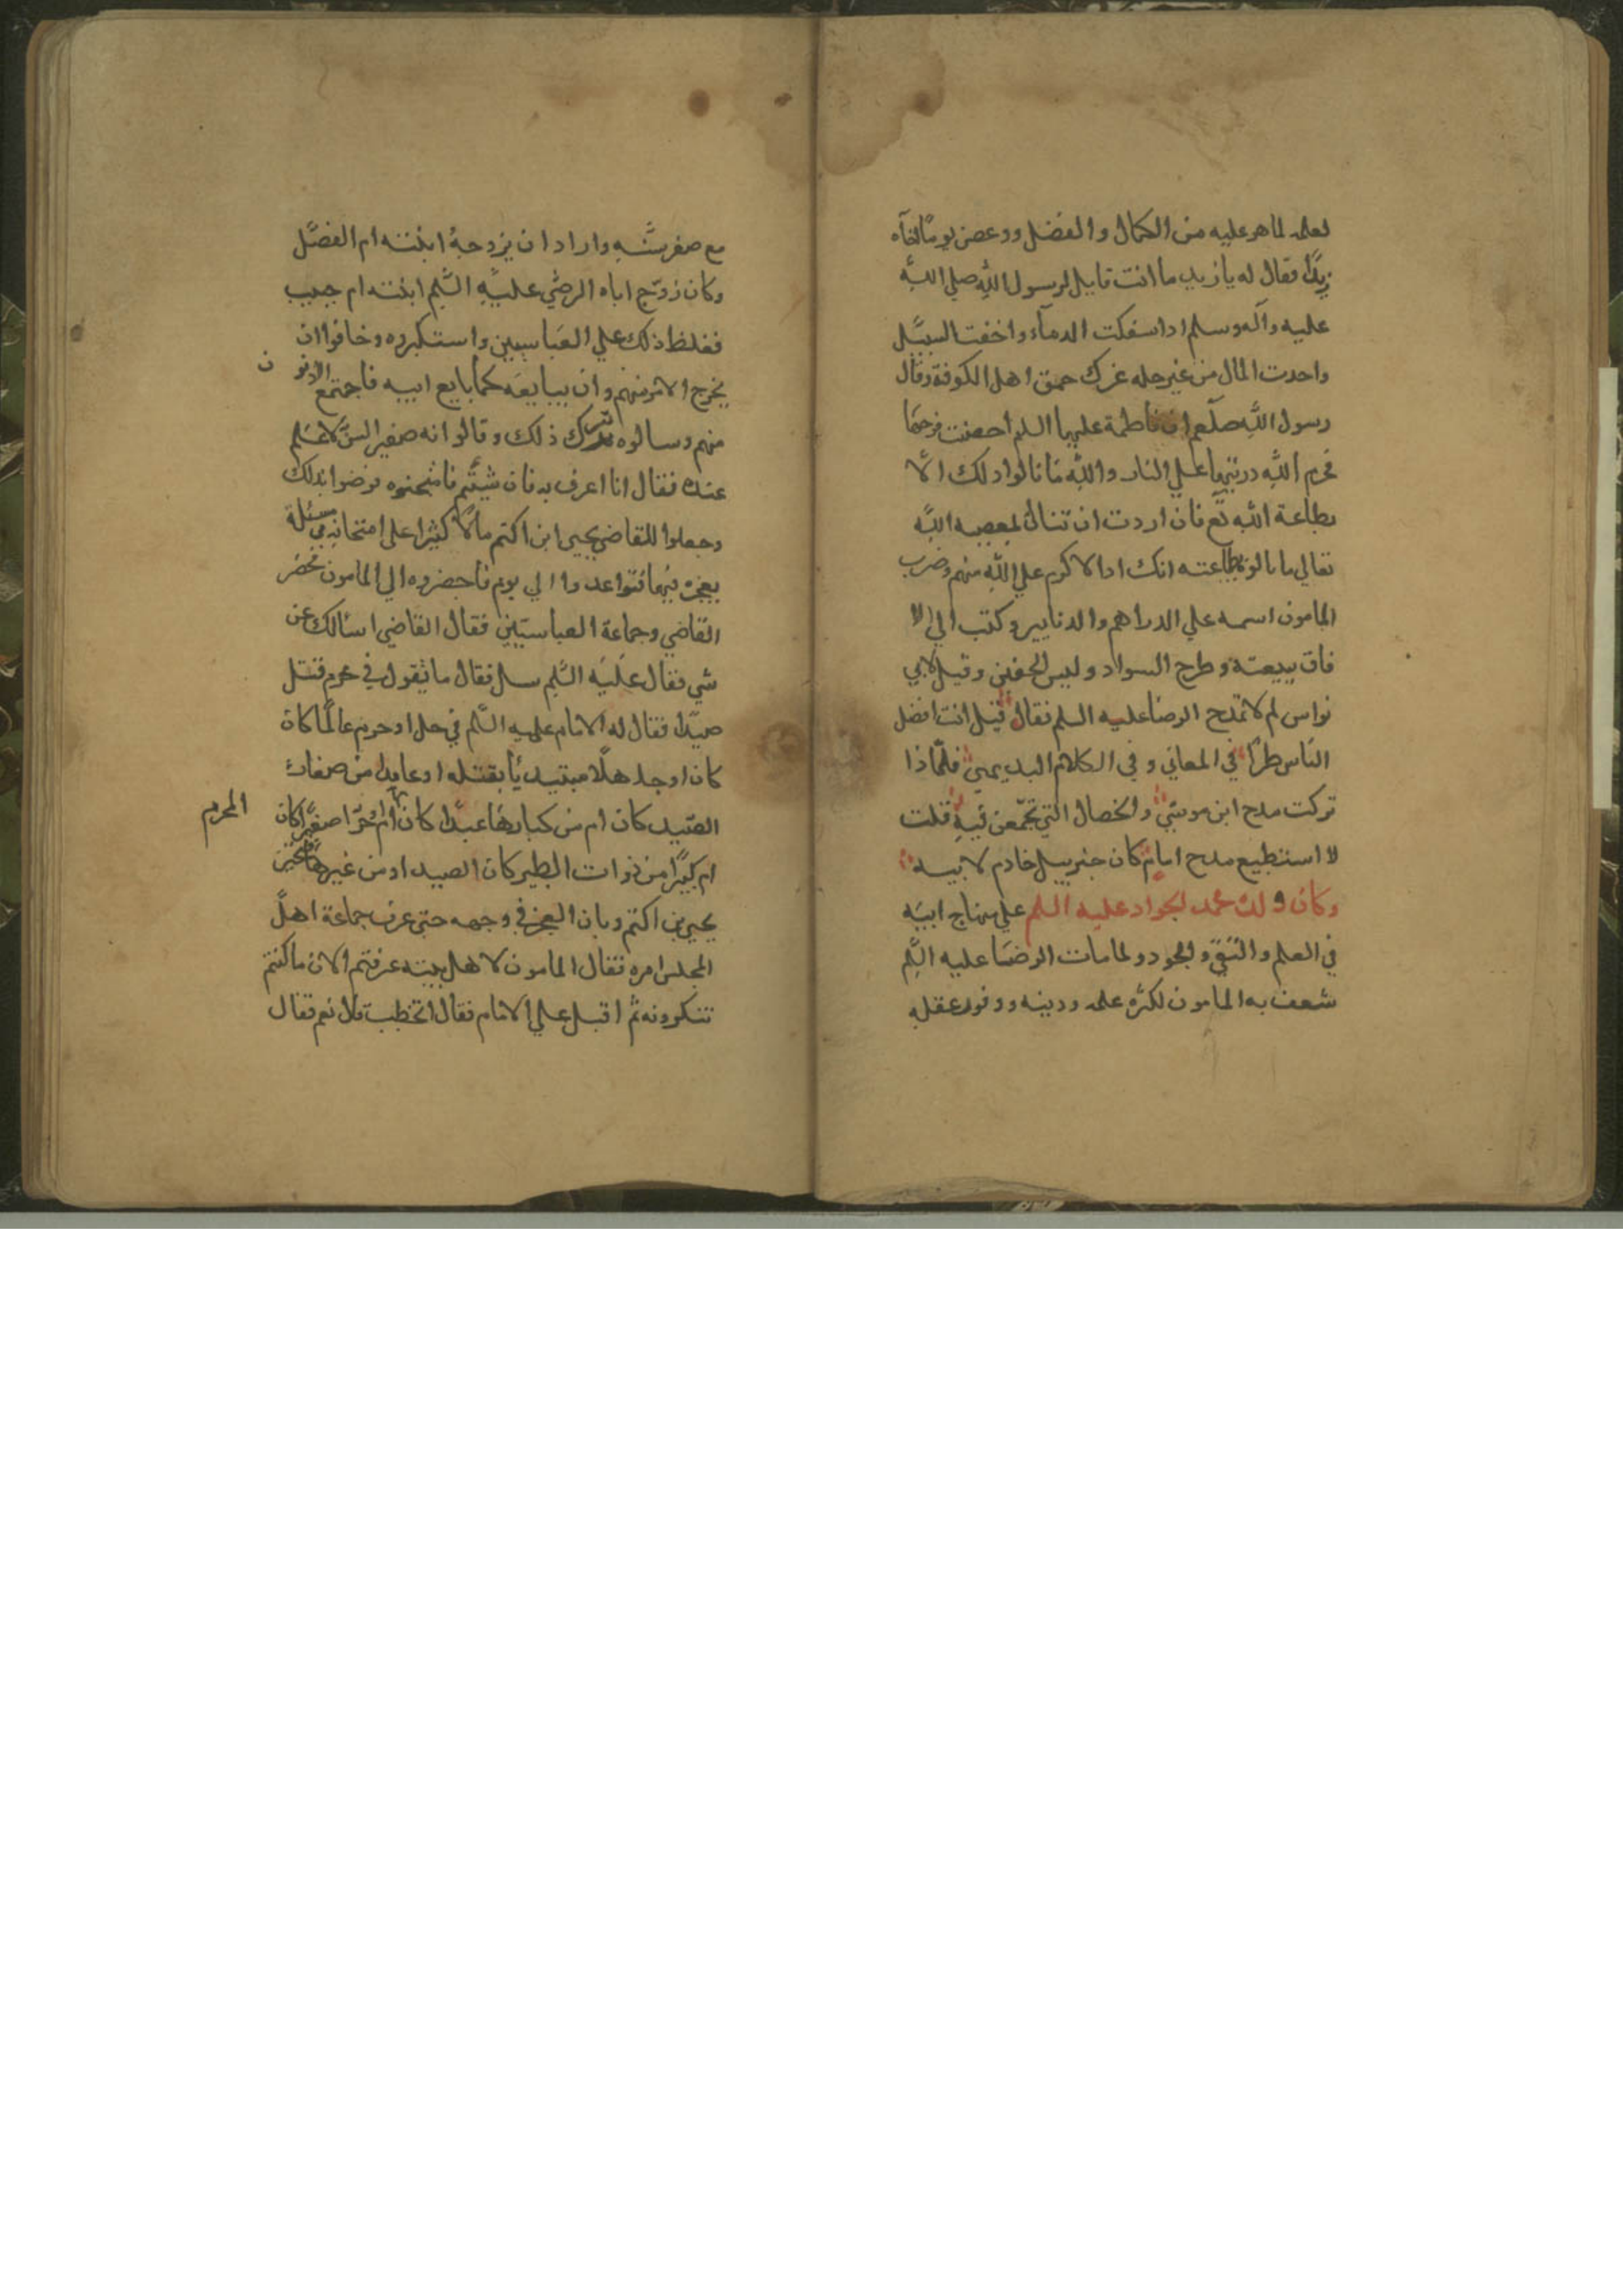 لعلمه لما هو عليه من الكمال والفضل ووعض يومًا اخآه
زيدًا فقال له يا زيد ما انت قايل لرسول الله صلي الله
عليه وآله وسلم اذا سفكت الدمآء واخفت السبيل
واخذت المال من غير حله غرك حمق اهل الكوفة وقال
رسول الله صلعم ان فاطمة عليها السلم احصنت فرجها
فحرم الله دريتها علي النار والله ما نالوا ذلك الّا
بطاعة الله تع فان اردت ان تنال بمعصيه الله
تعالي ما نالوه بطاعته انك اذا لاكرم علي الله منهم وضرب
المامون اسمه علي الدراهم والدنانير وكتب الي الا
فاق ببيعته وطرح السواد ولبس الخضر وقيل لابي
نواس لم لا تمدح الرضا عليه السلم فقال قيل لي انت افضل
الناس طرًّا في المعاني وفي الكلام البديهي فلمّاذا
تركت مدح ابن موسَي والخصال التي تجمّعن فيه قلت
لا استطيع مدح امام كان جبرييل خادم لابيه
وكان ولده محمد الجواد عليه السلم علي منهاج ابيه
في العلم والتقي والجود ولما مات الرضا عليه السلم
شعف به المامون لكثرة علمه ودينه ووفور عقله
مع صغر سنّه واراد ان يزوجهُ ابنته ام الفضل
وكان زوّج اباه الرضي عليه السّلم ابنته ام حبيب
فغلظ ذلك علي العباسيين واستكبروه وخافوا ان
يخرج الامر منهم وان يبايعه كما بايع ابيه فاجتمع الادنون
منهم وسالوه ترك ذلك وقالوا انه صغير السّن لا علم
عنده فقال انا اعرف به فان شيتم فامتحنوه فرضوا بذلك
وجعلوا للقاضي يحيي ابن اكتم مالًا كثيرا علي امتحانه في مسئلة
يعجزه فيها فتواعدوا الي يوم فاحضروه الي المامون وحضر
القاضي وجماعة العباسيّين فقال القاضي اسئالك عن
شي فقال عليه السّلم سل فقال ما تقول في محرم قتل
صيدًا فقال له الامام عليه السّلم في حل او حرم عالمًا كان
كان او جاهلًا مبتديًا بقتله او عايدا من صغار
الصّيد كان ام من كبارها عبدًا كان المحرم ام حرّا صغيرا كان
ام كبيرًا من ذوات الطير كان الصيد او من غيرها فتحيّر
يحيي بن اكتم وبان العجز في وجهه حتي عرف جماعة اهل
المجلس امره فقال المامون لاهل بيته عرفتم الان ما كنتم
تنكرونه ثم اقبل علي الامام فقال اتخطب قال نعم فقال